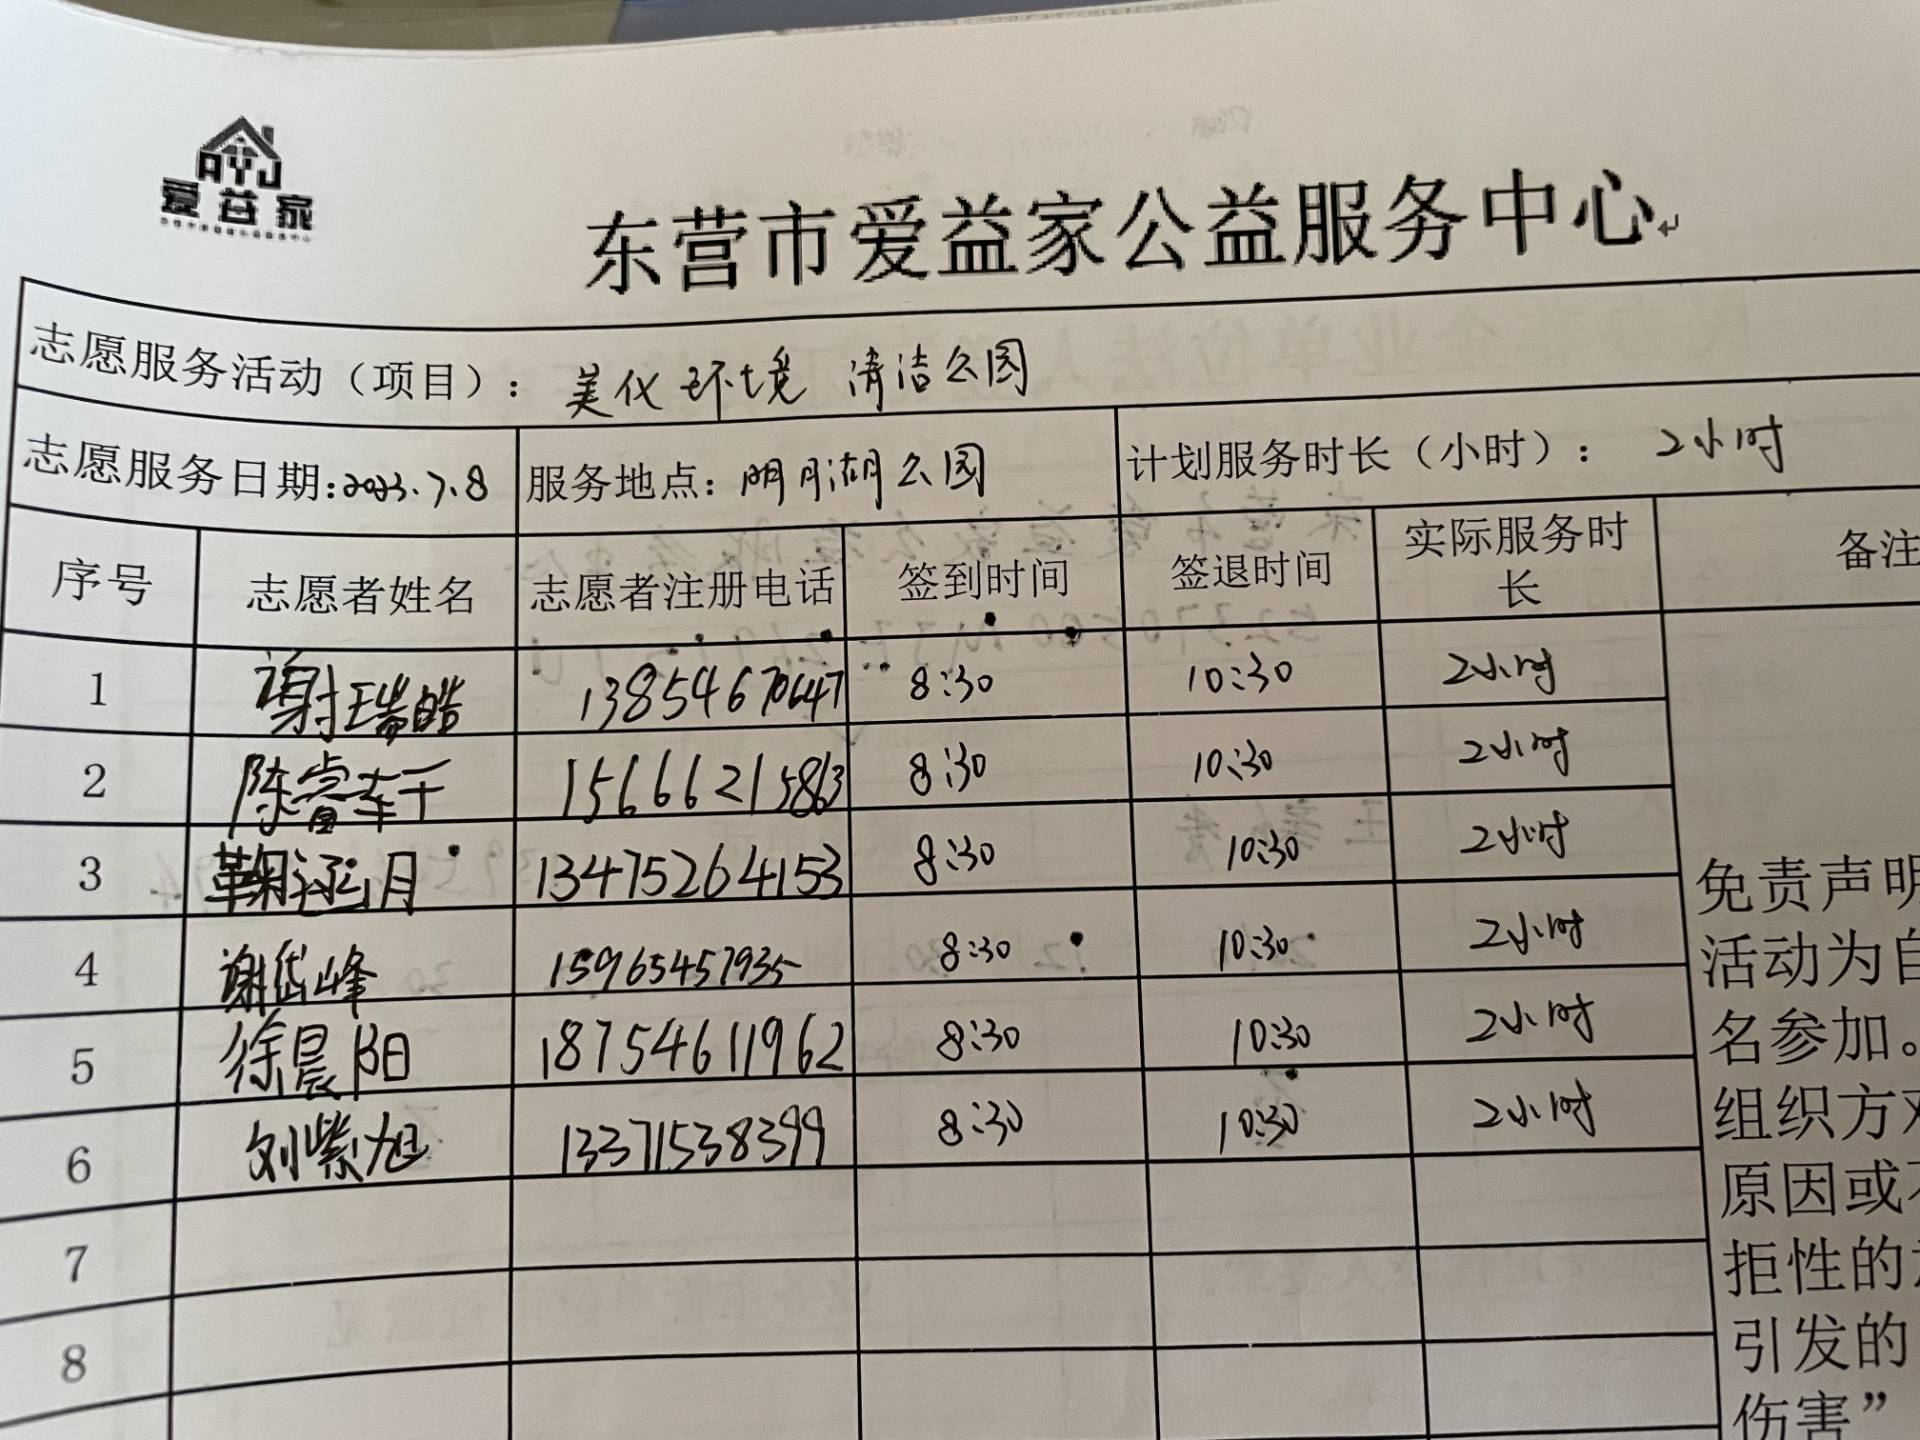 AYJ
爱益家
东营市爱益家公益服务中心
志愿服务活动（项目）：美化环境 清洁公园
志愿服务日期:2023.7.8 服务地点：明月湖公园 计划服务时长（小时）：2小时
序号 志愿者姓名 志愿者注册电话 签到时间 签退时间 实际服务时长 备注
1 谢瑞皓 13854670647 8:30 10:30 2小时
2 陈 15666215863 8:30 10:30 2小时
3 鞠 月 13475264153 8:30 10:30 2小时
4 谢岱峰 15965457935 8:30 10:30 2小时
5 徐晨阳 18754611962 8:30 10:30 2小时
6 刘紫旭 13371538399 8:30 10:30 2小时
7
8
免责声明
活动为自
名参加。
组织方对
原因或不
拒性的意
引发的
伤害”